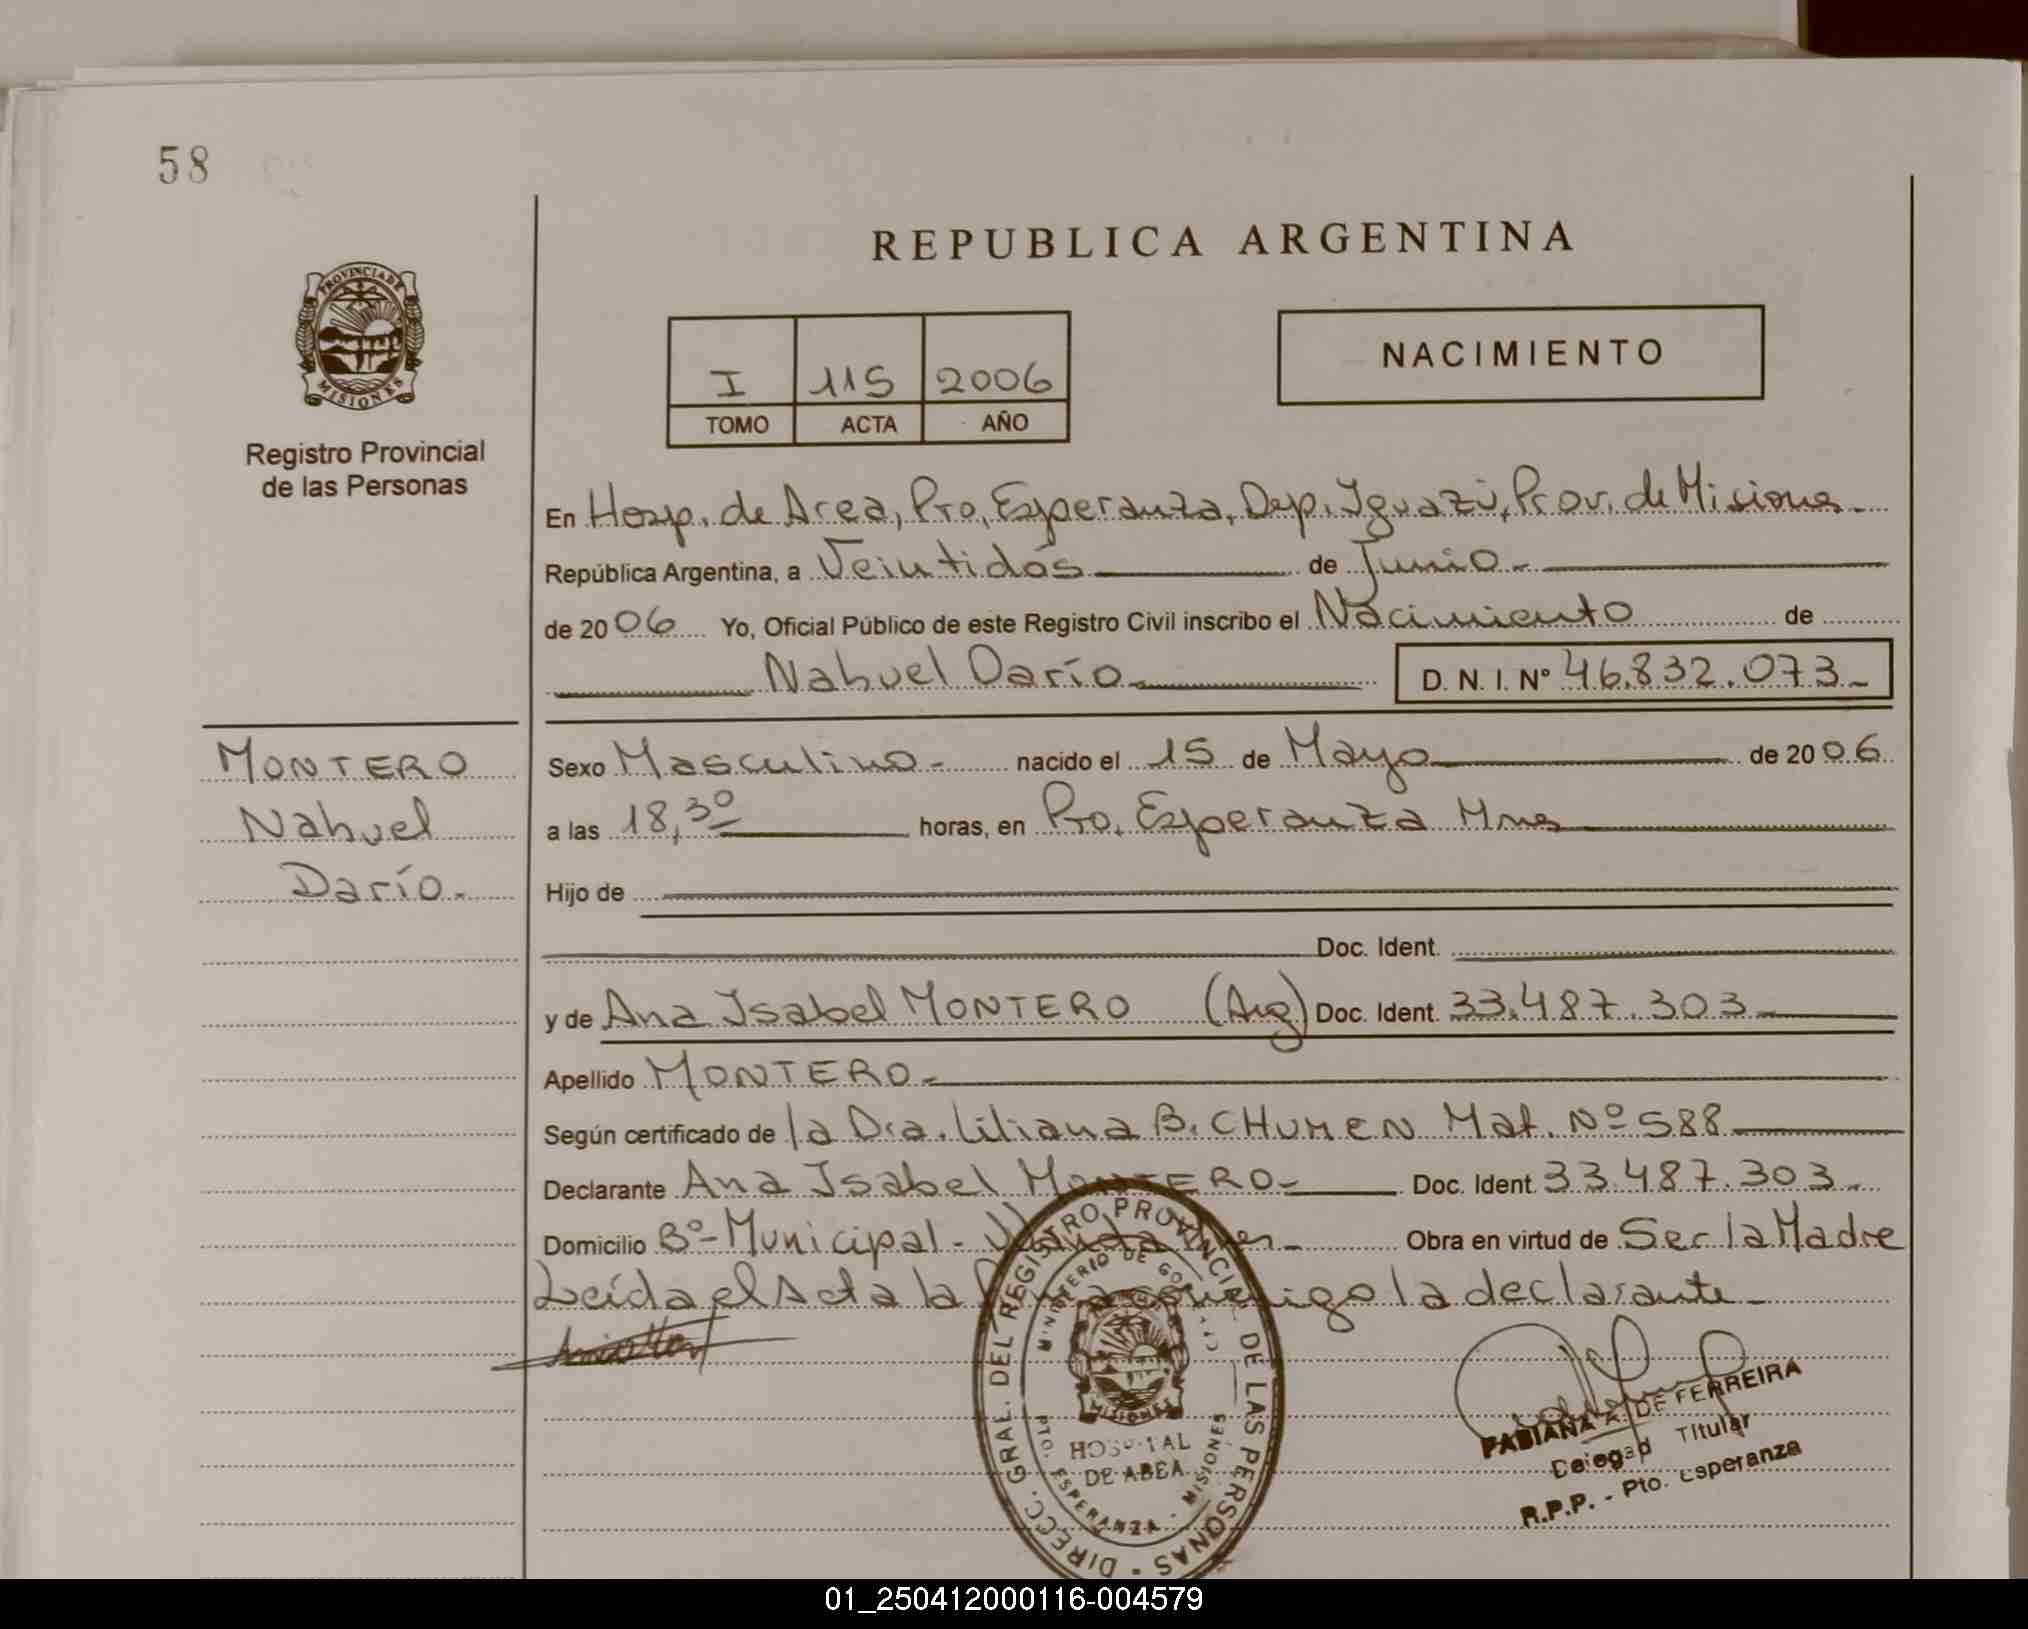 58
REPUBLICA ARGENTINA
PROVINCIA DE
MISIONES
Registro Provincial
de las Personas
I 115 2006
TOMO ACTA AÑO
NACIMIENTO
En Hosp. de Area, Pto, Esperanza, Dep. Iguazú, Prov. de Misiones.
República Argentina, a Veintidós de Junio.
de 2006 Yo, Oficial Público de este Registro Civil inscribo el Nacimiento de
Nahuel Darío D.N.I. Nº 46.832.073
MONTERO
Nahuel
Darío.
Sexo Masculino nacido el 15 de Mayo de 2006
a las 18,30 horas, en Pto. Esperanza Mnes
Hijo de
Doc. Ident.
y de Ana Isabel MONTERO (Arg) Doc. Ident. 33.487.303
Apellido MONTERO
Según certificado de la Dra. Liliana B. CHUMEN Mat. Nº 588
Declarante Ana Isabel MONTERO Doc. Ident. 33.487.303
Domicilio Bº Municipal - Obra en virtud de Ser la Madre
Leída el Acta la conmigo la declarante
DIRECC. GRAL. DEL REGISTRO PROVINCIAL DE LAS PERSONAS
MINISTERIO DE
MISIONES
HOSPITAL
DE AREA
PTO. ESPERANZA - MISIONES
FABIANA A. DE FERREIRA
Delegad Titular
R.P.P. - Pto. Esperanza
01_250412000116-004579